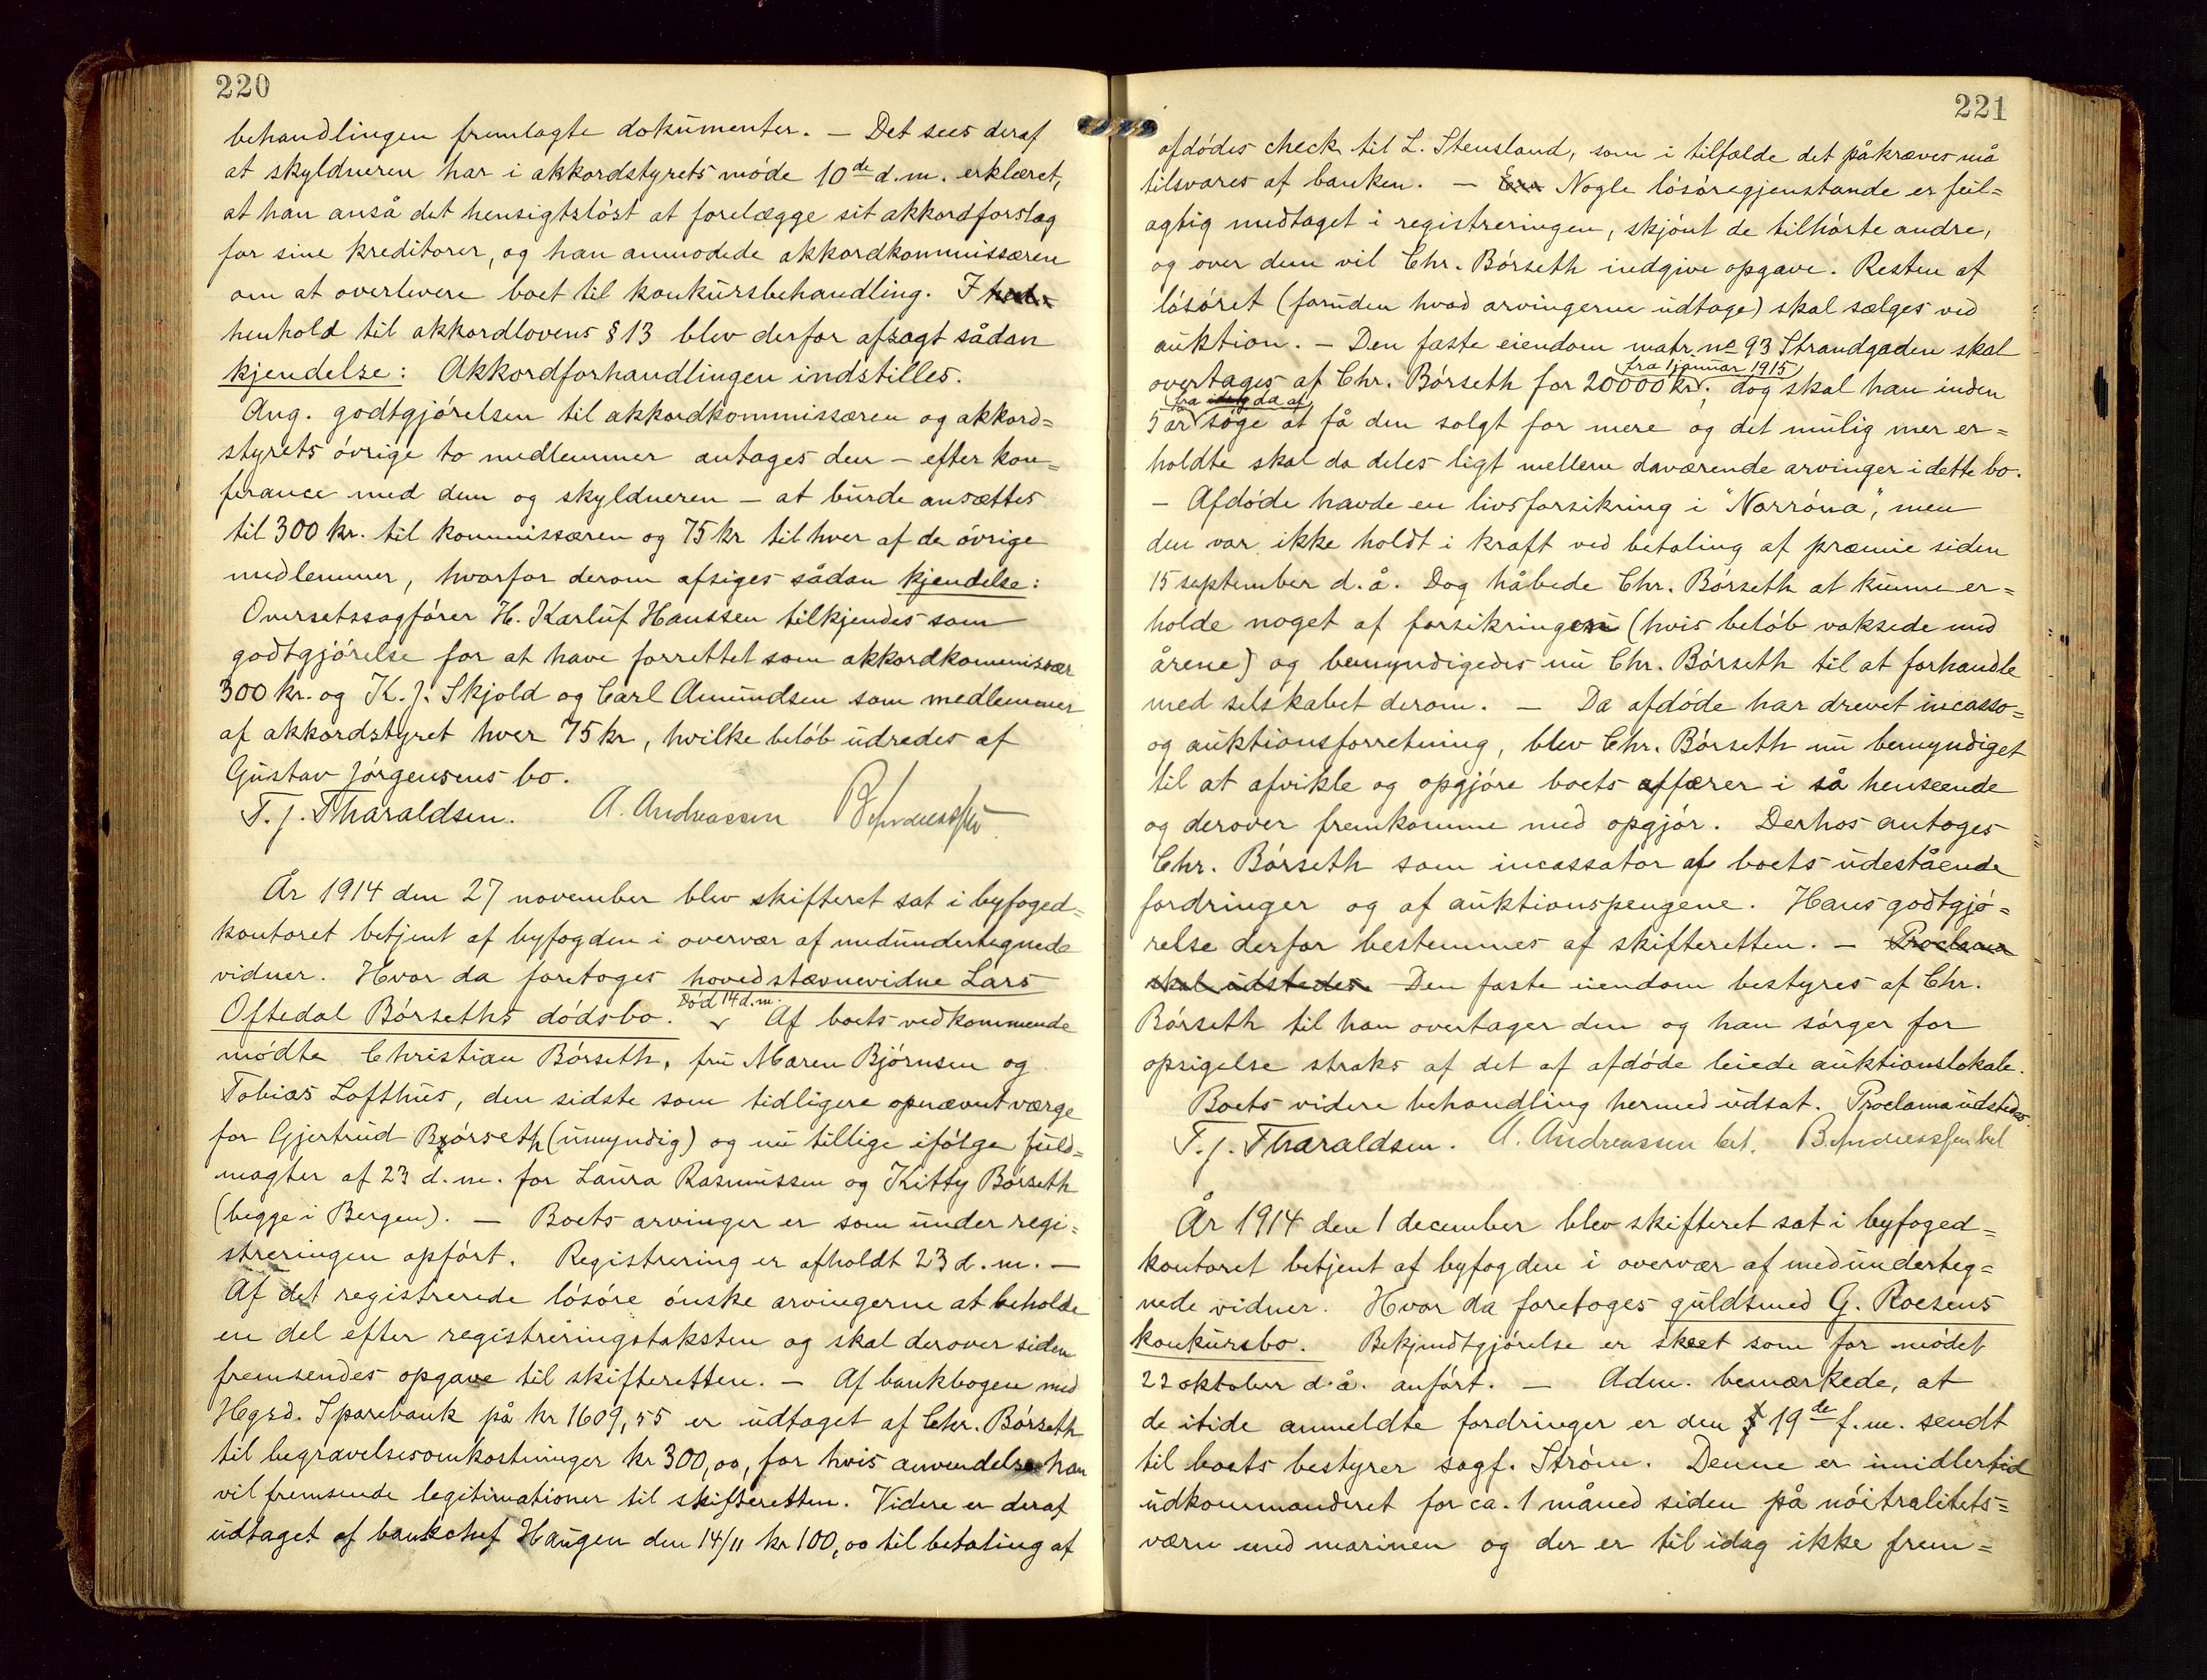 220
behandlingen fremlagte dokumenter. — Det sees deraf
at skyldneren har i akkordstyrets møde 10de d.m. erklæret,
at han anså det hensigtsløst at forelægge sit akkordforslag
for sine kreditorer, og han anmodede akkordkommissæren
om at overlevere boet til konkursbehandling. I
henhold til akkordlovens § 13 blev derfor afsagt sådan
kjendelse: Akkordforhandlingen indstilles.
Ang. godtgjørelsen til akkordkommissæren og akkord=
styrets øvrige to medlemmer antages den – efter kon=
ferance med dem og skyldneren – at burde ansættes
til 300 kr. til kommissæren og 75 kr til hver af de øvrige
medlemmer, hvorfor derom afsiges sådan kjendelse:
Overretssagfører H. Karluf Hanssen tilkjendes som
godtgjørelse for at have forrettet som akkordkommissær
300 kr. og K. J. Skjold og Carl Amundsen som medlemmer
af akkordstyret hver 75 kr, hvilke beløb udredes af
Gustav Jørgensens bo.
T. J. Tharaldsen. A. Andreassen
År 1914 den 27 november blev skifteret sat i byfoged=
kontoret betjent af byfogden i overvær af medundertegnede
vidner. Hvor da foretoges hovedstævnevidne Lars
Oftedal Børseths dødsbo. Død 14 d.m. Af boets vedkommende
mødte Christian Børseth, fru Maren Bjørnsen og
Tobias Lofthus, den sidste som tidligere opnævnt værge
for Gjertrud Børseth (umyndig) og nu tillige ifølge fuld=
magter af 23 d.m. for Laura Rasmussen og Kitty Børseth
(begge i Bergen). — Boets arvinger er som under regi=
streringen opført. Registrering er afholdt 23 d.m. —
Af det registrerede løsøre ønske arvingerne at beholde
en del efter registreringstaksten og skal derover siden
fremsendes opgave til skifteretten. — Af bankbogen med
Hgsd. Sparebank på kr 1609,55 er udtaget af Chr. Børseth
til begravelsesomkostninger kr 300,00, for hvis anvendelse han
vil fremsende legitimationer til skifteretten. Videre er deraf
udtaget af bankchef Haugen den 14/11 kr 100,00 til betaling af
221
afdødes check til L. Stensland, som i tilfælde det påkræves må
tilsvares af banken. — Nogle løsøregjenstande er feil=
agtig medtaget i registreringen, skjønt de tilhørte andre,
og over dem vil Chr. Børseth indgive opgave. Resten af
løsøret (foruden hvad arvingerne udtage) skal sælges ved
auktion. – Den faste eiendom matr. no 93 Strandgaden skal
fra 1 januar 1915
overtages af Chr. Børseth for 20000 kr; dog skal han inden
fra da af
5 år søge at få den solgt for mere og det mulig mer er=
holdte skal da deles ligt mellem daværende arvinger i dette bo.
– Afdøde havde en livsforsikring i "Norrøna", men
den var ikke holdt i kraft ved betaling af præmie siden
15 september d.å. Dog håbede Chr. Børseth at kunne er=
holde noget af forsikringen (hvis beløb voksede med
årene) og bemyndigedes nu Chr. Børseth til at forhandle
med selskabet derom. — Da afdøde har drevet incasso=
og auktionsforretning, blev Chr. Børseth nu bemyndiget
til at afvikle og opgjøre boets affærer i så henseende
og derover fremkomme med opgjør. Derhos antoges
Chr. Børseth som incassator af boets udestående
fordringer og af auktionspengene. Hans godtgjø=
relse derfor bestemmes af skifteretten. — Proclama
skal udstedes. Den faste eiendom bestyres af Chr.
Børseth til han overtager den og han sørger for
opsigelse straks af det af afdøde leiede auktionslokale.
Boets videre behandling hermed udsat. Proclama udstedes.
T. J. Tharaldsen. A. Andreassen bet.
År 1914 den 1 december blev skifteret sat i byfoged=
kontoret betjent af byfogden i overvær af medunderteg=
nede vidner. Hvor da foretoges guldsmed G. Roesens
konkursbo. Bekjendtgjørelse er skeet som for mødet
22 oktober d.å. anført. — Adm. bemærkede, at
de itide anmeldte fordringer er den 19de f.m. sendt
til boets bestyrer sagf. Strøm. Denne er imidlertid
udkommanderet for ca. 1 måned siden på nøitralitets=
værn med marinen og der er til idag ikke frem=